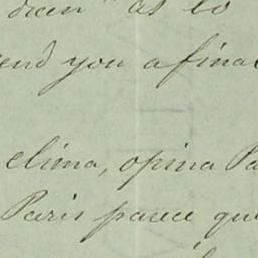 as to
end you a final
clima, opina Pa
Paris parece qu